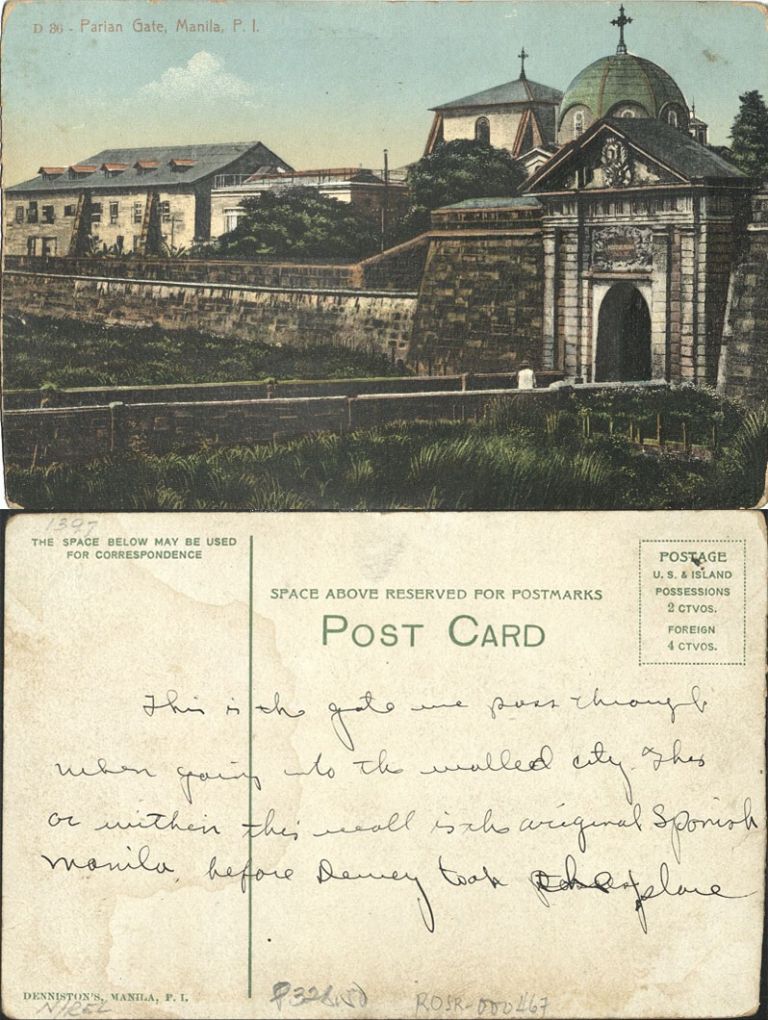 D 86 - Parian Gate, Manila, P. I.
1397
THE SPACE BELOW MAY BE USED
FOR CORRESPONDENCE
SPACE ABOVE RESERVED FOR POSTMARKS
POST CARD
POSTAGE
U. S. & ISLAND
POSSESSIONS
2 CTVOS.
FOREIGN
4 CTVOS.
This is the gate we pass through
when going into the walled city. This
or within this wall is the original Spanish
Manila, before Dewey took place
DENNISTON'S, MANILA, P. I.
₱328.50
ROSR-000467